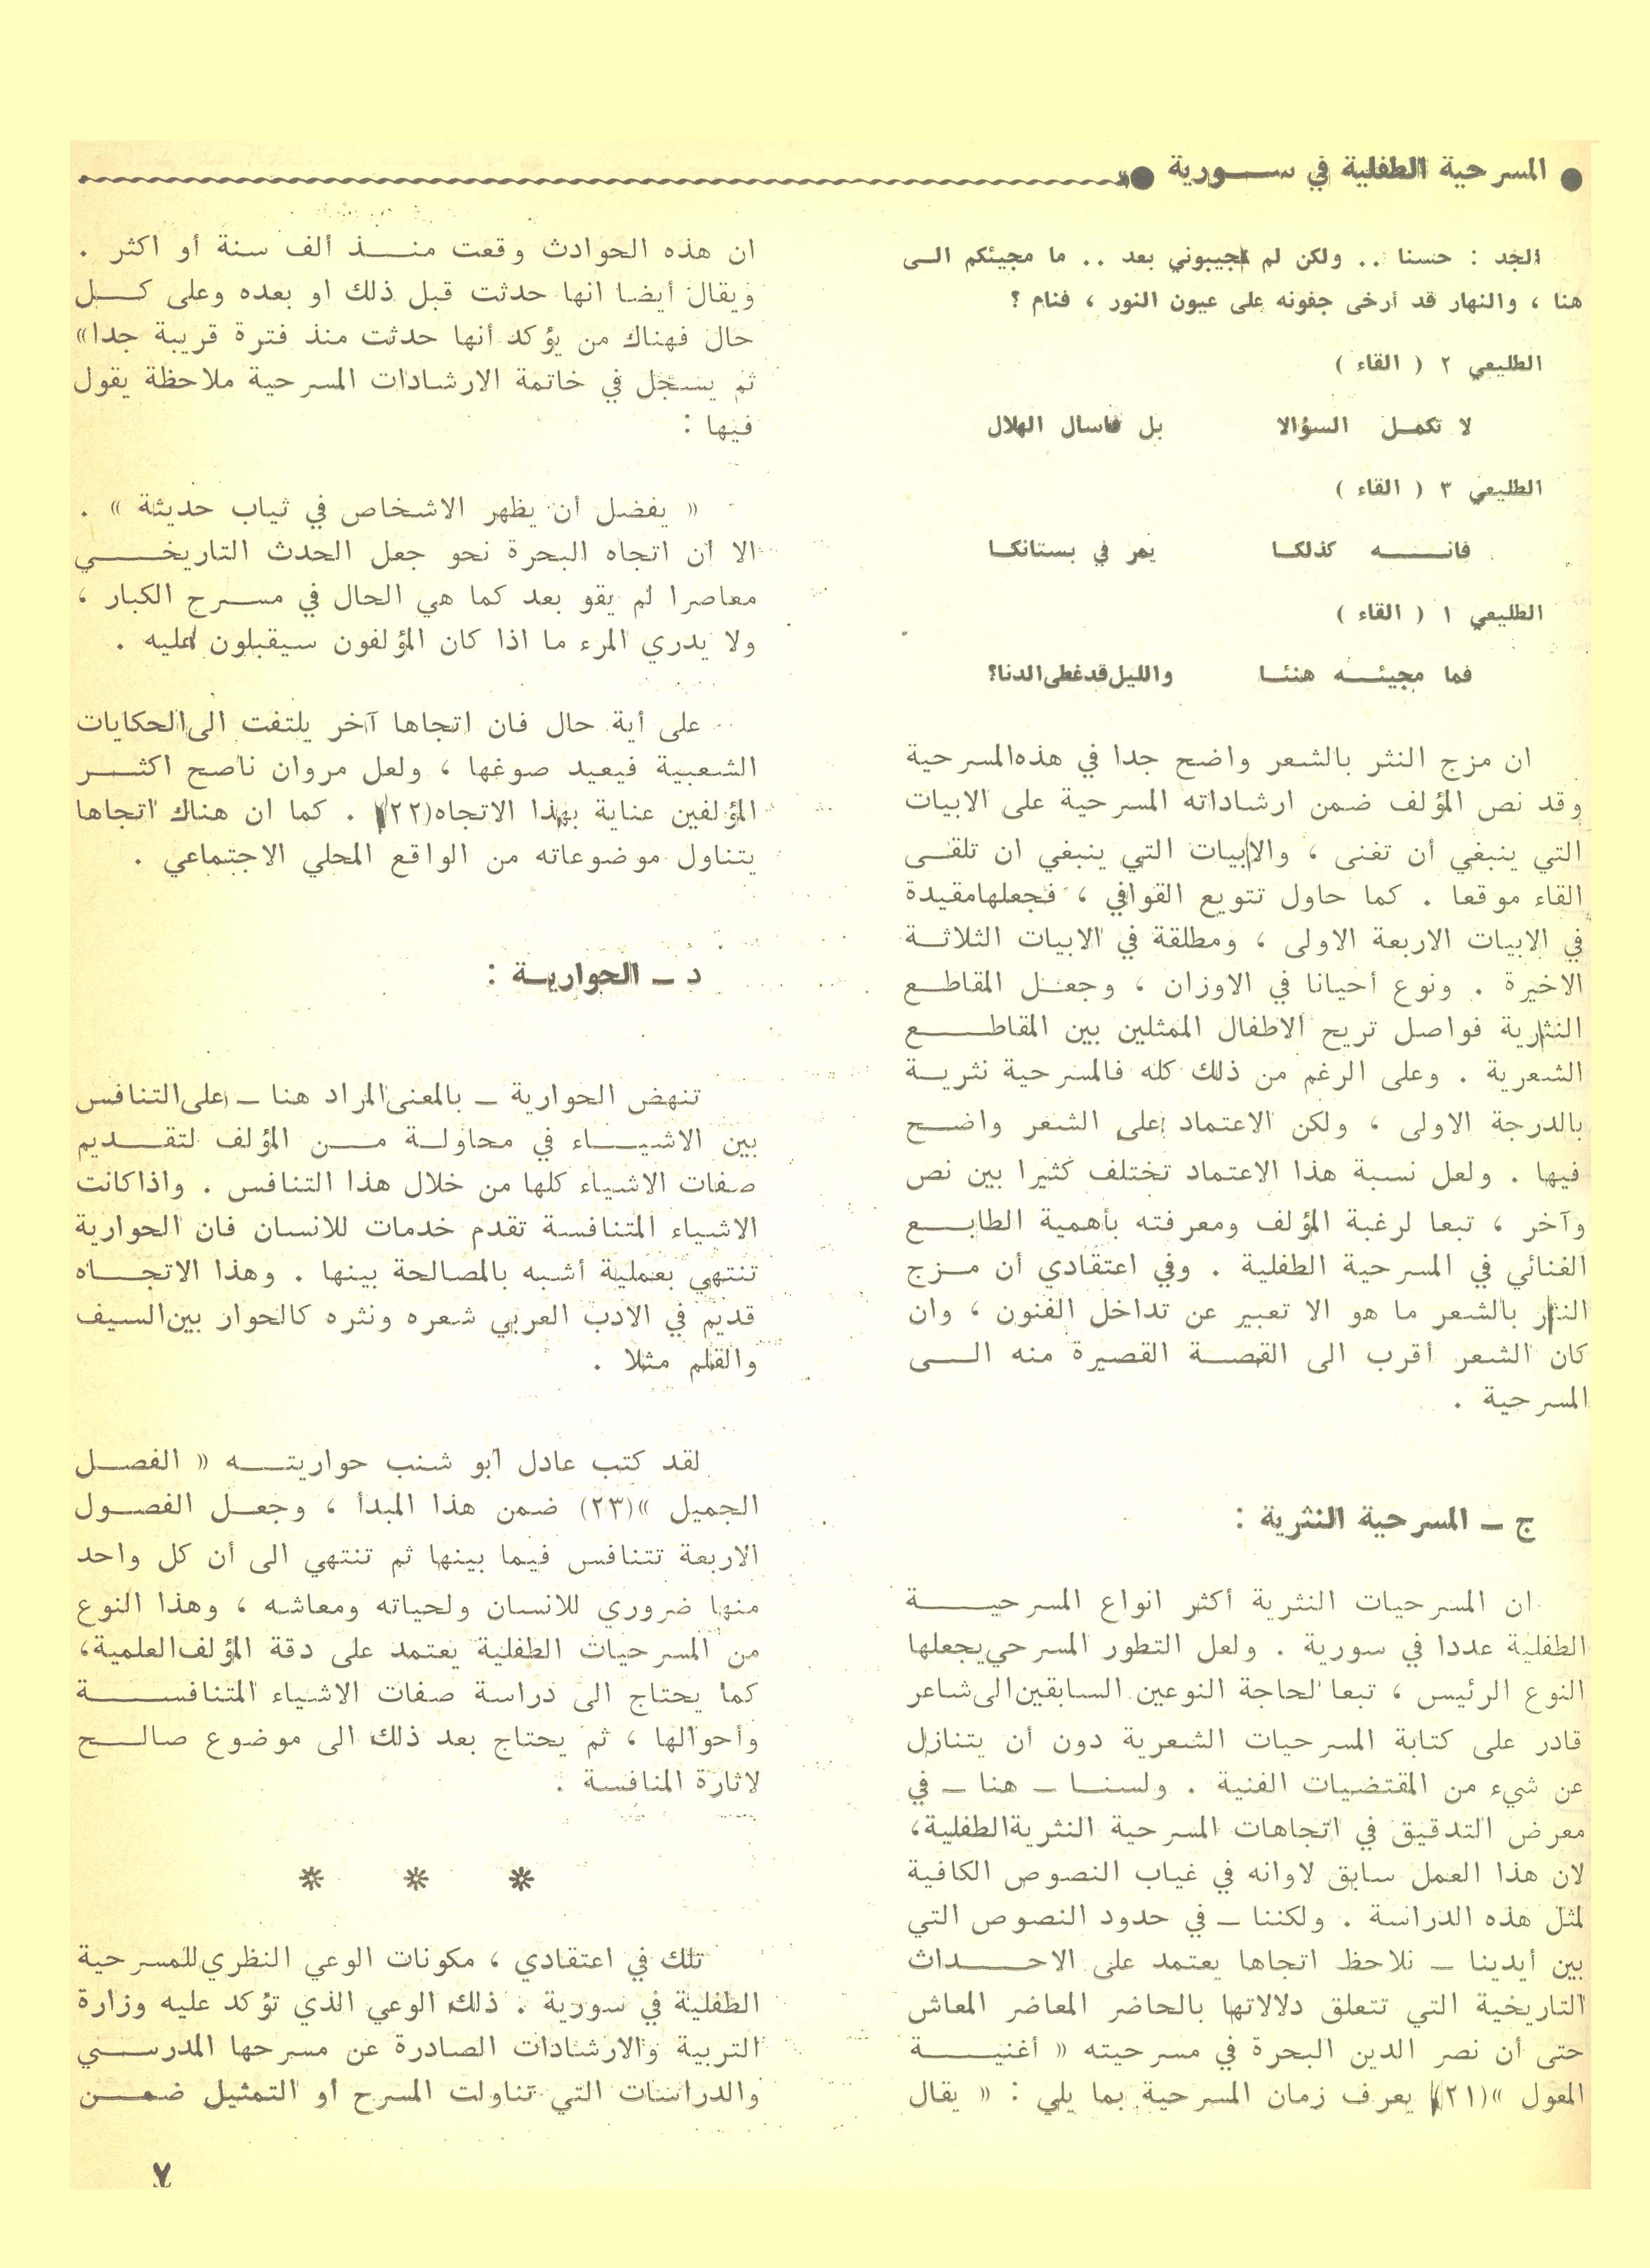 ● المسرحية الطفلية في سورية ●
الجد : حسنا .. ولكن لم تجيبوني بعد .. ما مجيئكم الى
هنا ، والنهار قد أرخى جفونه على عيون النور ، فنام ؟
الطليعي ٢ ( القاء )
لا تكمل السؤالا بل فاسال الهلال
الطليعي ٣ ( القاء )
فانه كذلكا يمر في بستانكا
الطليعي ١ ( القاء )
فما مجيئه هنئا والليل قد غطى الدنا؟
ان مزج النثر بالشعر واضح جدا في هذه المسرحية
وقد نص المؤلف ضمن ارشاداته المسرحية على الابيات
التي ينبغي أن تغنى ، والابيات التي ينبغي ان تلقى
القاء موقعا . كما حاول تتويع القوافي ، فجعلها مقيدة
في الابيات الاربعة الاولى ، ومطلقة في الابيات الثلاثة
الاخيرة . ونوع أحيانا في الاوزان ، وجعل المقاطع
النثرية فواصل تريح الاطفال الممثلين بين المقاطع
الشعرية . وعلى الرغم من ذلك كله فالمسرحية نثرية
بالدرجة الاولى ، ولكن الاعتماد على الشعر واضح
فيها . ولعل نسبة هذا الاعتماد تختلف كثيرا بين نص
وآخر ، تبعا لرغبة المؤلف ومعرفته بأهمية الطابع
الغنائي في المسرحية الطفلية . وفي اعتقادي أن مزج
النثر بالشعر ما هو الا تعبير عن تداخل الفنون ، وان
كان الشعر أقرب الى القصة القصيرة منه الى
المسرحية .
ج ـ المسرحية النثرية :
ان المسرحيات النثرية أكثر انواع المسرحية
الطفلية عددا في سورية . ولعل التطور المسرحي يجعلها
النوع الرئيس ، تبعا لحاجة النوعين السابقين الى شاعر
قادر على كتابة المسرحيات الشعرية دون أن يتنازل
عن شيء من المقتضيات الفنية . ولسنا ـ هنا ـ في
معرض التدقيق في اتجاهات المسرحية النثرية الطفلية،
لان هذا العمل سابق لاوانه في غياب النصوص الكافية
لمثل هذه الدراسة . ولكننا ـ في حدود النصوص التي
بين أيدينا ـ نلاحظ اتجاها يعتمد على الاحداث
التاريخية التي تتعلق دلالاتها بالحاضر المعاضر المعاش
حتى أن نصر الدين البحرة في مسرحيته « أغنية
المعول »(٢١) يعرف زمان المسرحية بما يلي : « يقال
ان هذه الحوادث وقعت منذ ألف سنة أو اكثر .
ويقال أيضا انها حدثت قبل ذلك او بعده وعلى كل
حال فهناك من يؤكد أنها حدثت منذ فترة قريبة جدا»
ثم يسجل في خاتمة الارشادات المسرحية ملاحظة يقول
فيها :
« يفضل أن يظهر الاشخاص في ثياب حديثة » .
الا ان اتجاه البحرة نحو جعل الحدث التاريخي
معاصرا لم يقو بعد كما هي الحال في مسرح الكبار ،
ولا يدري المرء ما اذا كان المؤلفون سيقبلون عليه .
على أية حال فان اتجاها آخر يلتفت الى الحكايات
الشعبية فيعيد صوغها ، ولعل مروان ناصح اكثر
المؤلفين عناية بهذا الاتجاه(٢٢) . كما ان هناك اتجاها
يتناول موضوعاته من الواقع المحلي الاجتماعي .
د ـ الحوارية :
تنهض الحوارية ـ بالمعنى المراد هنا ـ على التنافس
بين الاشياء في محاولة من المؤلف لتقديم
صفات الاشياء كلها من خلال هذا التنافس . واذا كانت
الاشياء المتنافسة تقدم خدمات للانسان فان الحوارية
تنتهي بعملية أشبه بالمصالحة بينها . وهذا الاتجاه
قديم في الادب العربي شعره ونثره كالحوار بين السيف
والقلم مثلا .
لقد كتب عادل أبو شنب حواريته « الفصل
الجميل »(٢٣) ضمن هذا المبدأ ، وجعل الفصول
الاربعة تتنافس فيما بينها ثم تنتهي الى أن كل واحد
منها ضروري للانسان ولحياته ومعاشه ، وهذا النوع
من المسرحيات الطفلية يعتمد على دقة المؤلف العلمية،
كما يحتاج الى دراسة صفات الاشياء المتنافسة
وأحوالها ، ثم يحتاج بعد ذلك الى موضوع صالح
لاثارة المنافسة .
* * *
تلك في اعتقادي ، مكونات الوعي النظري للمسرحية
الطفلية في سورية . ذلك الوعي الذي تؤكد عليه وزارة
التربية والارشادات الصادرة عن مسرحها المدرسي
والدراسات التي تناولت المسرح أو التمثيل ضمن
٧